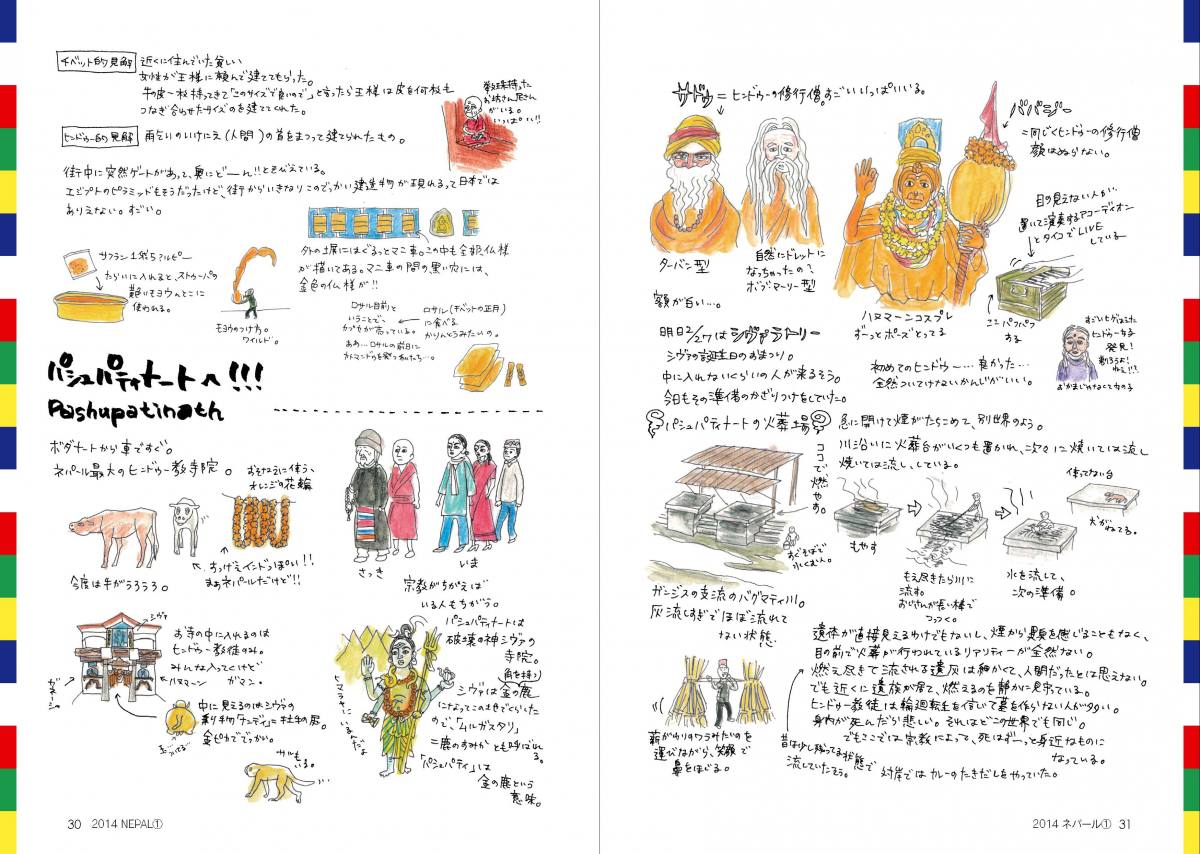 チベット的見解
近くに住んでいた貧しい
女性が王様に頼んで建ててもらった。
牛の皮一枚持ってきて「このサイズで良いので」と言ったら王様は皮を何枚も
つなぎ合わせたサイズのを建ててくれた。
数珠持った
お坊さん尼さん
がいる。
いっぱい!!
ヒンドゥー的見解
雨乞いのいけにえ(人間)の首をまつって建てられたもの。
街中に突然ゲートがあって、奥にどーん!!とそびえている。
エジプトのピラミッドもそうだったけど、街からいきなりこのでっかい建造物が現れるって日本では
ありえない。すごい。
サフラン1袋5ルピー
たらいに入れると、ストゥーパの
模様
使われる。
モヨウのつけ方。
ワイルド。
外の塀にはぐるっとマニ車。この中も全部仏様
が描いてある。マニ車の間の黒い穴には、
金色の仏様が!!
ロサル目前と
いうことで、
売っている。
ああ…ロサルの前日に
カトマンドゥを発つ私たち…。
ロサル(チベットの正月)
に食べる
かりんとうみたいの。
パシュパティナートへ!!!
Pashupatinath
ボダナートから車ですぐ。
ネパール最大のヒンドゥー教寺院。
おそなえに使う、
オレンジの花輪
今度は牛がうろうろ。
すっげえインドっぽい!!
まぁネパールだけど!!
さっき
いま
宗教がちがえば
いる人もちがう。
シヴァ
お寺の中に入れるのは
ヒンドゥー教徒のみ。
みんな入ってくけど
ガマン。
ハヌマーン
ガネーシャ
中に見えるのはシヴァの
乗り物「ナンディ」に牡牛の尻。
金ピカででっかい。
サルも
いる。
パシュパティナートは
破壊の神シヴァの
寺院。
角を持つ
シヴァは金の鹿
になってこの地でくらした
ので、「ムルガスタリ」
=鹿のすみかとも呼ばれ
る。
「パシュパティ」は
金の鹿という
意味。
ヒマラヤに住んだよ
30 2014 NEPAL①
サドゥ=ヒンドゥーの修行僧。すごいいっぱいいる。
ターバン型
自然にドレットに
なっちゃったの?
ボブマーリー型
額が白い…。
ババジー
=同じくヒンドゥーの修行僧
額はぬらない。
ハヌマーンコスプレ
ずーっとポーズとってる
目の見えない人が…
置いて演奏するアコーディオン
とタイコでLIVE
している
ここパフパフ
する
すごいヒゲはえた
ヒンドゥー女子
発見!
剃ろうよ!
おかまじゃなくて女の子
明日2/27はシヴァラトリー
シヴァの誕生日のおまつり。
中に入れないくらいの人が来るそう。
今日もその準備のかざりつけをしていた。
初めてのヒンドゥー…良かった…
全然ついてけないかんじがいい。
パシュパティナートの火葬場
急に開けて煙がたちこめて、別世界のよう。
川沿いに火葬台がいくつも置かれ、次々に焼いては流し
焼いては流し、している。
ココで燃やす。
すぐそばで
水くむ人。
もやす
もえ尽きたら川に
流す。
おじさんが長い棒で
つつく。
水を流して、
次の準備。
使ってない台
犬がねてる。
ガンジスの支流のバグマティ川。
灰流しすぎでほぼ流れて
ない状態
薪がわりのワラみたいのを
運びながら、笑顔で
鼻をほじる。
遺体が直接見えるわけでもないし、煙から臭を感じることもなく、
目の前で火葬が行われているリアリティーが全然ない。
燃え尽きて流される遺灰は細かくて、人間だったとは思えない。
でも近くに遺族が居て、燃えるのを静かに見守っている。
ヒンドゥー教徒は輪廻転生を信じて墓を作らない人が多い。
身内が死んだら悲しい。それはどこの世界でも同じ。
でもここでは宗教によって、死はずーっと身近なものに
なっている。
昔は少し残ってる状態で
流していたそう。
対岸ではカレーのたきだしをやっていた。
2014 ネパール① 31